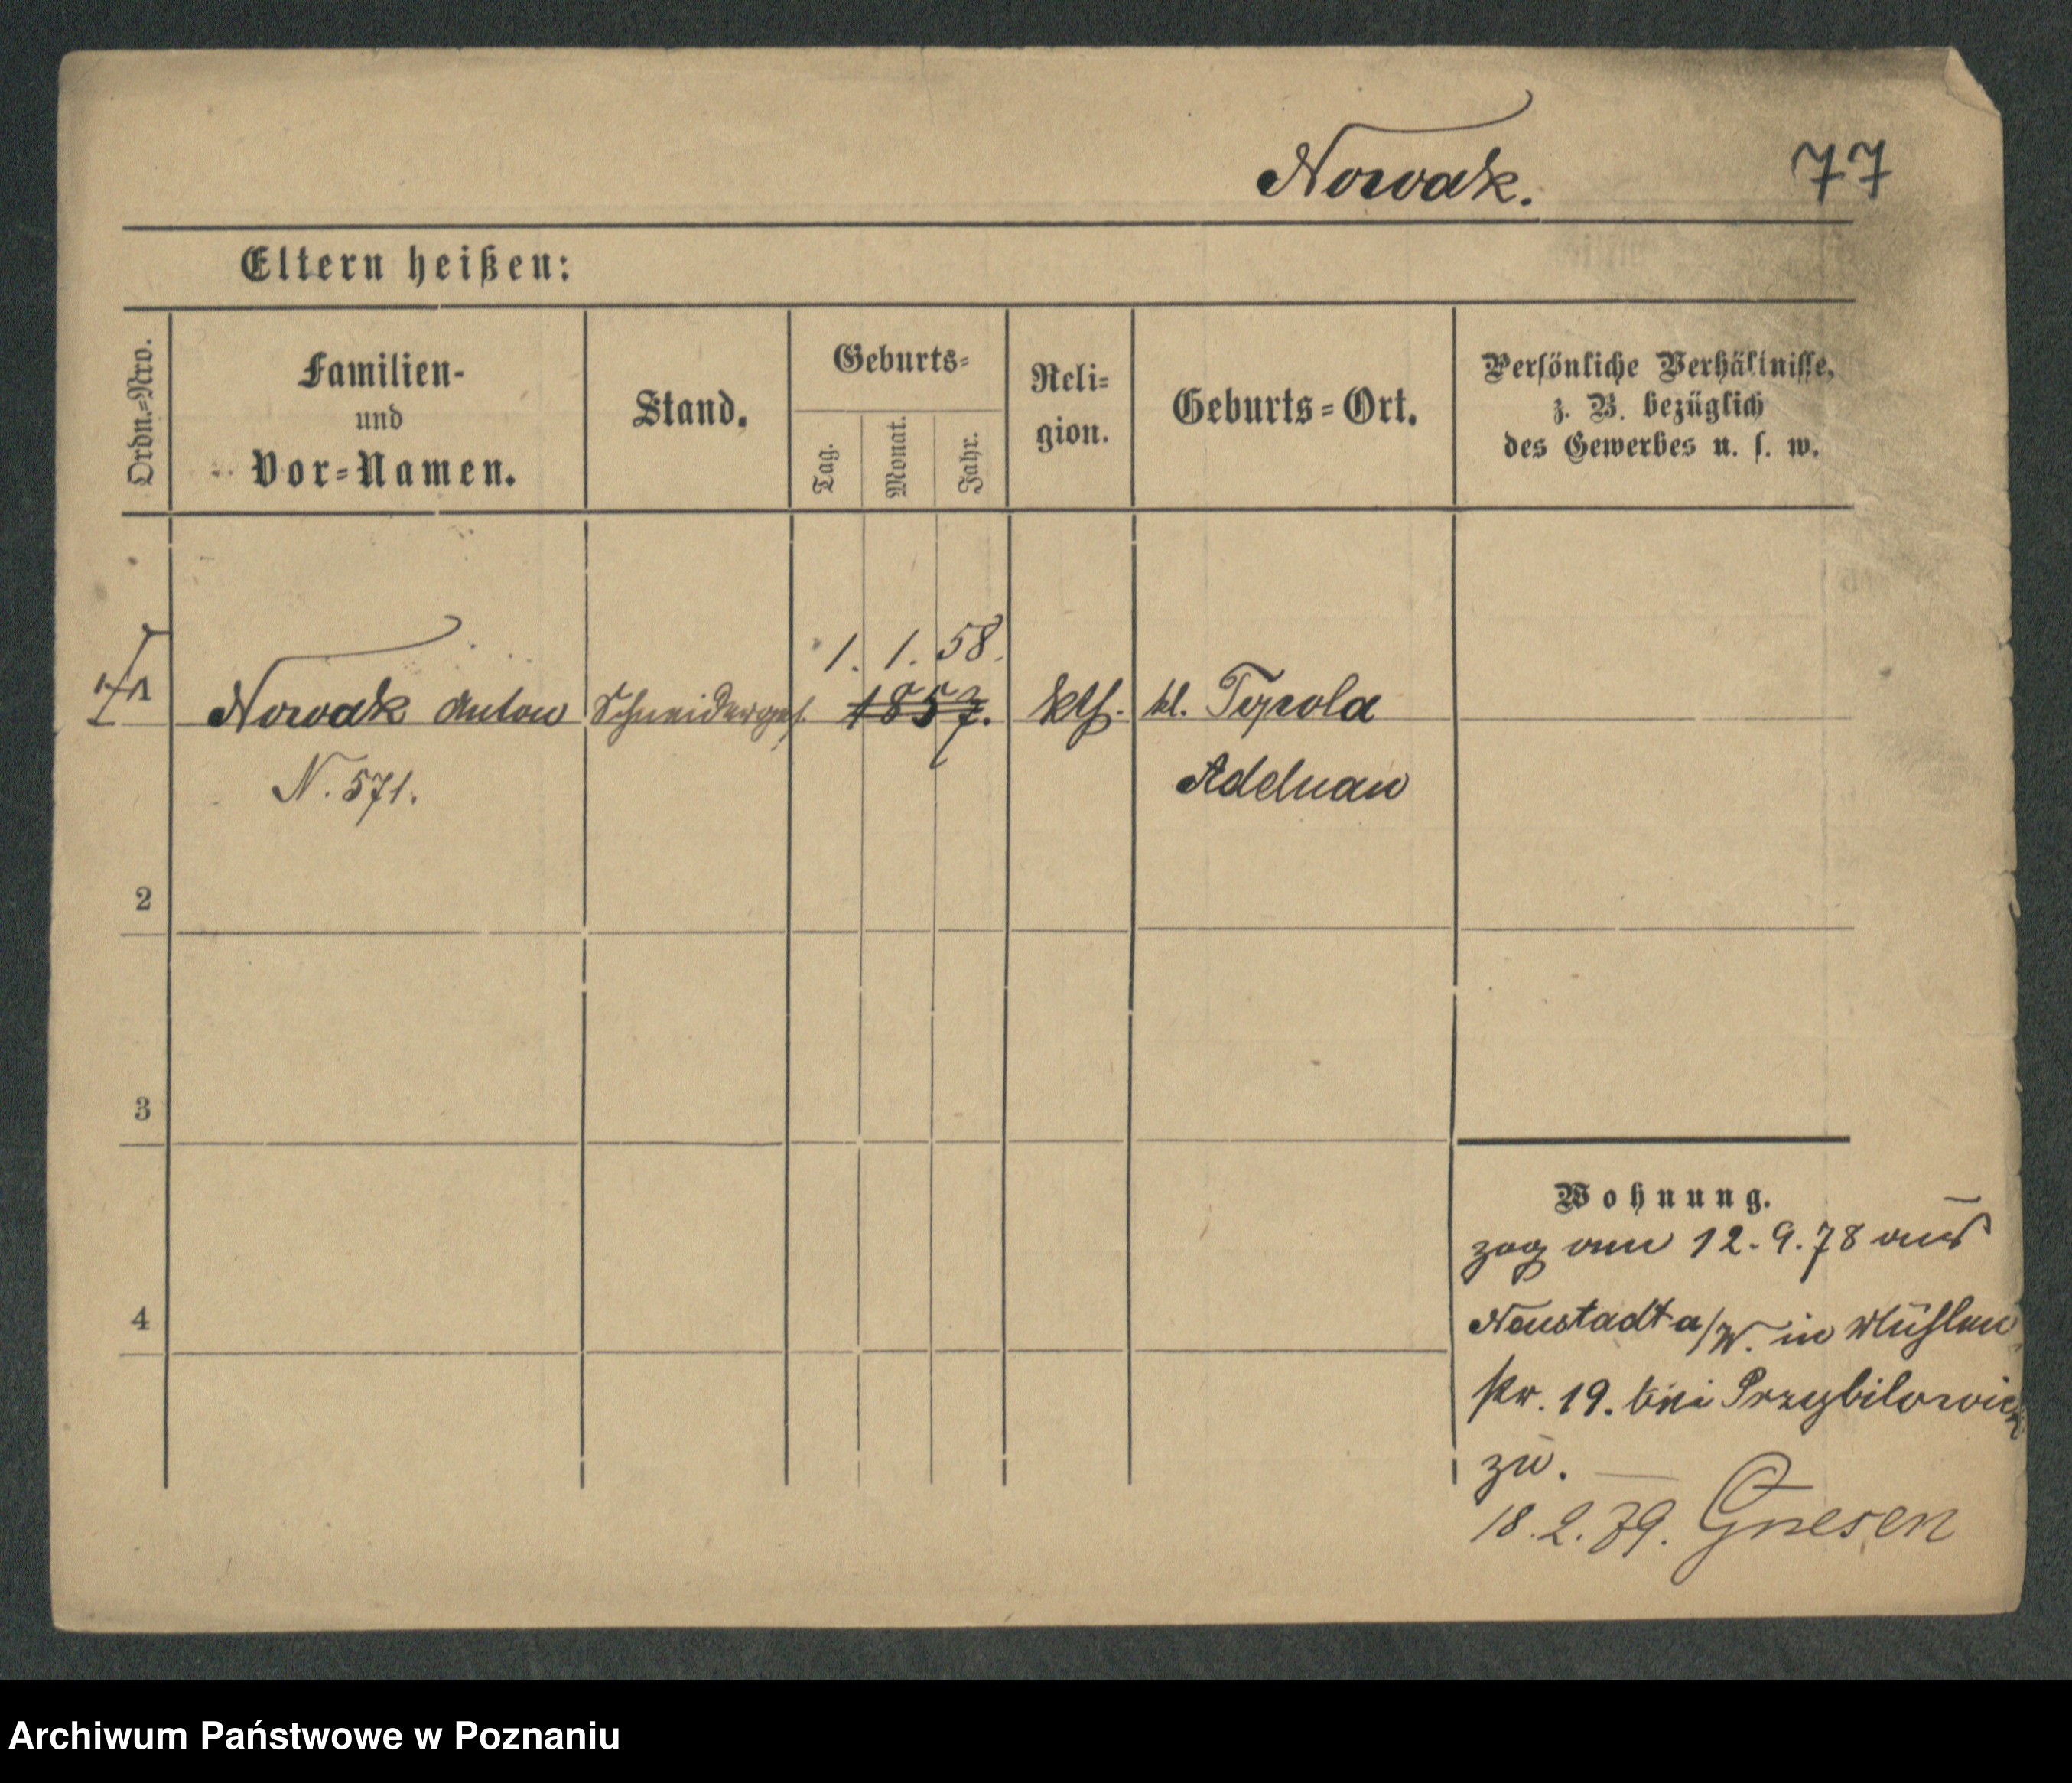 Nowak. 77
Eltern heißen:
Ordn.=Nro.
Familien-
und
Vor=Namen.
Stand.
Geburts=
Tag.
Monat.
Jahr.
Reli=
gion.
Geburts=Ort.
Persönliche Verhältnisse,
z. B. bezüglich
des Gewerbes u. s. w.
1. 1. 58.
1 Nowak Anton Schneiderges. 1857. kth. kl. Tyrola
N. 571. Adelnau
2
3
4
Wohnung.
zog am 12.9.78 aus
Neustadt a/W. in Mühlen
str. 19. bei Przybilowicz
zu.
18.2.79. Gnesen
Archiwum Państwowe w Poznaniu